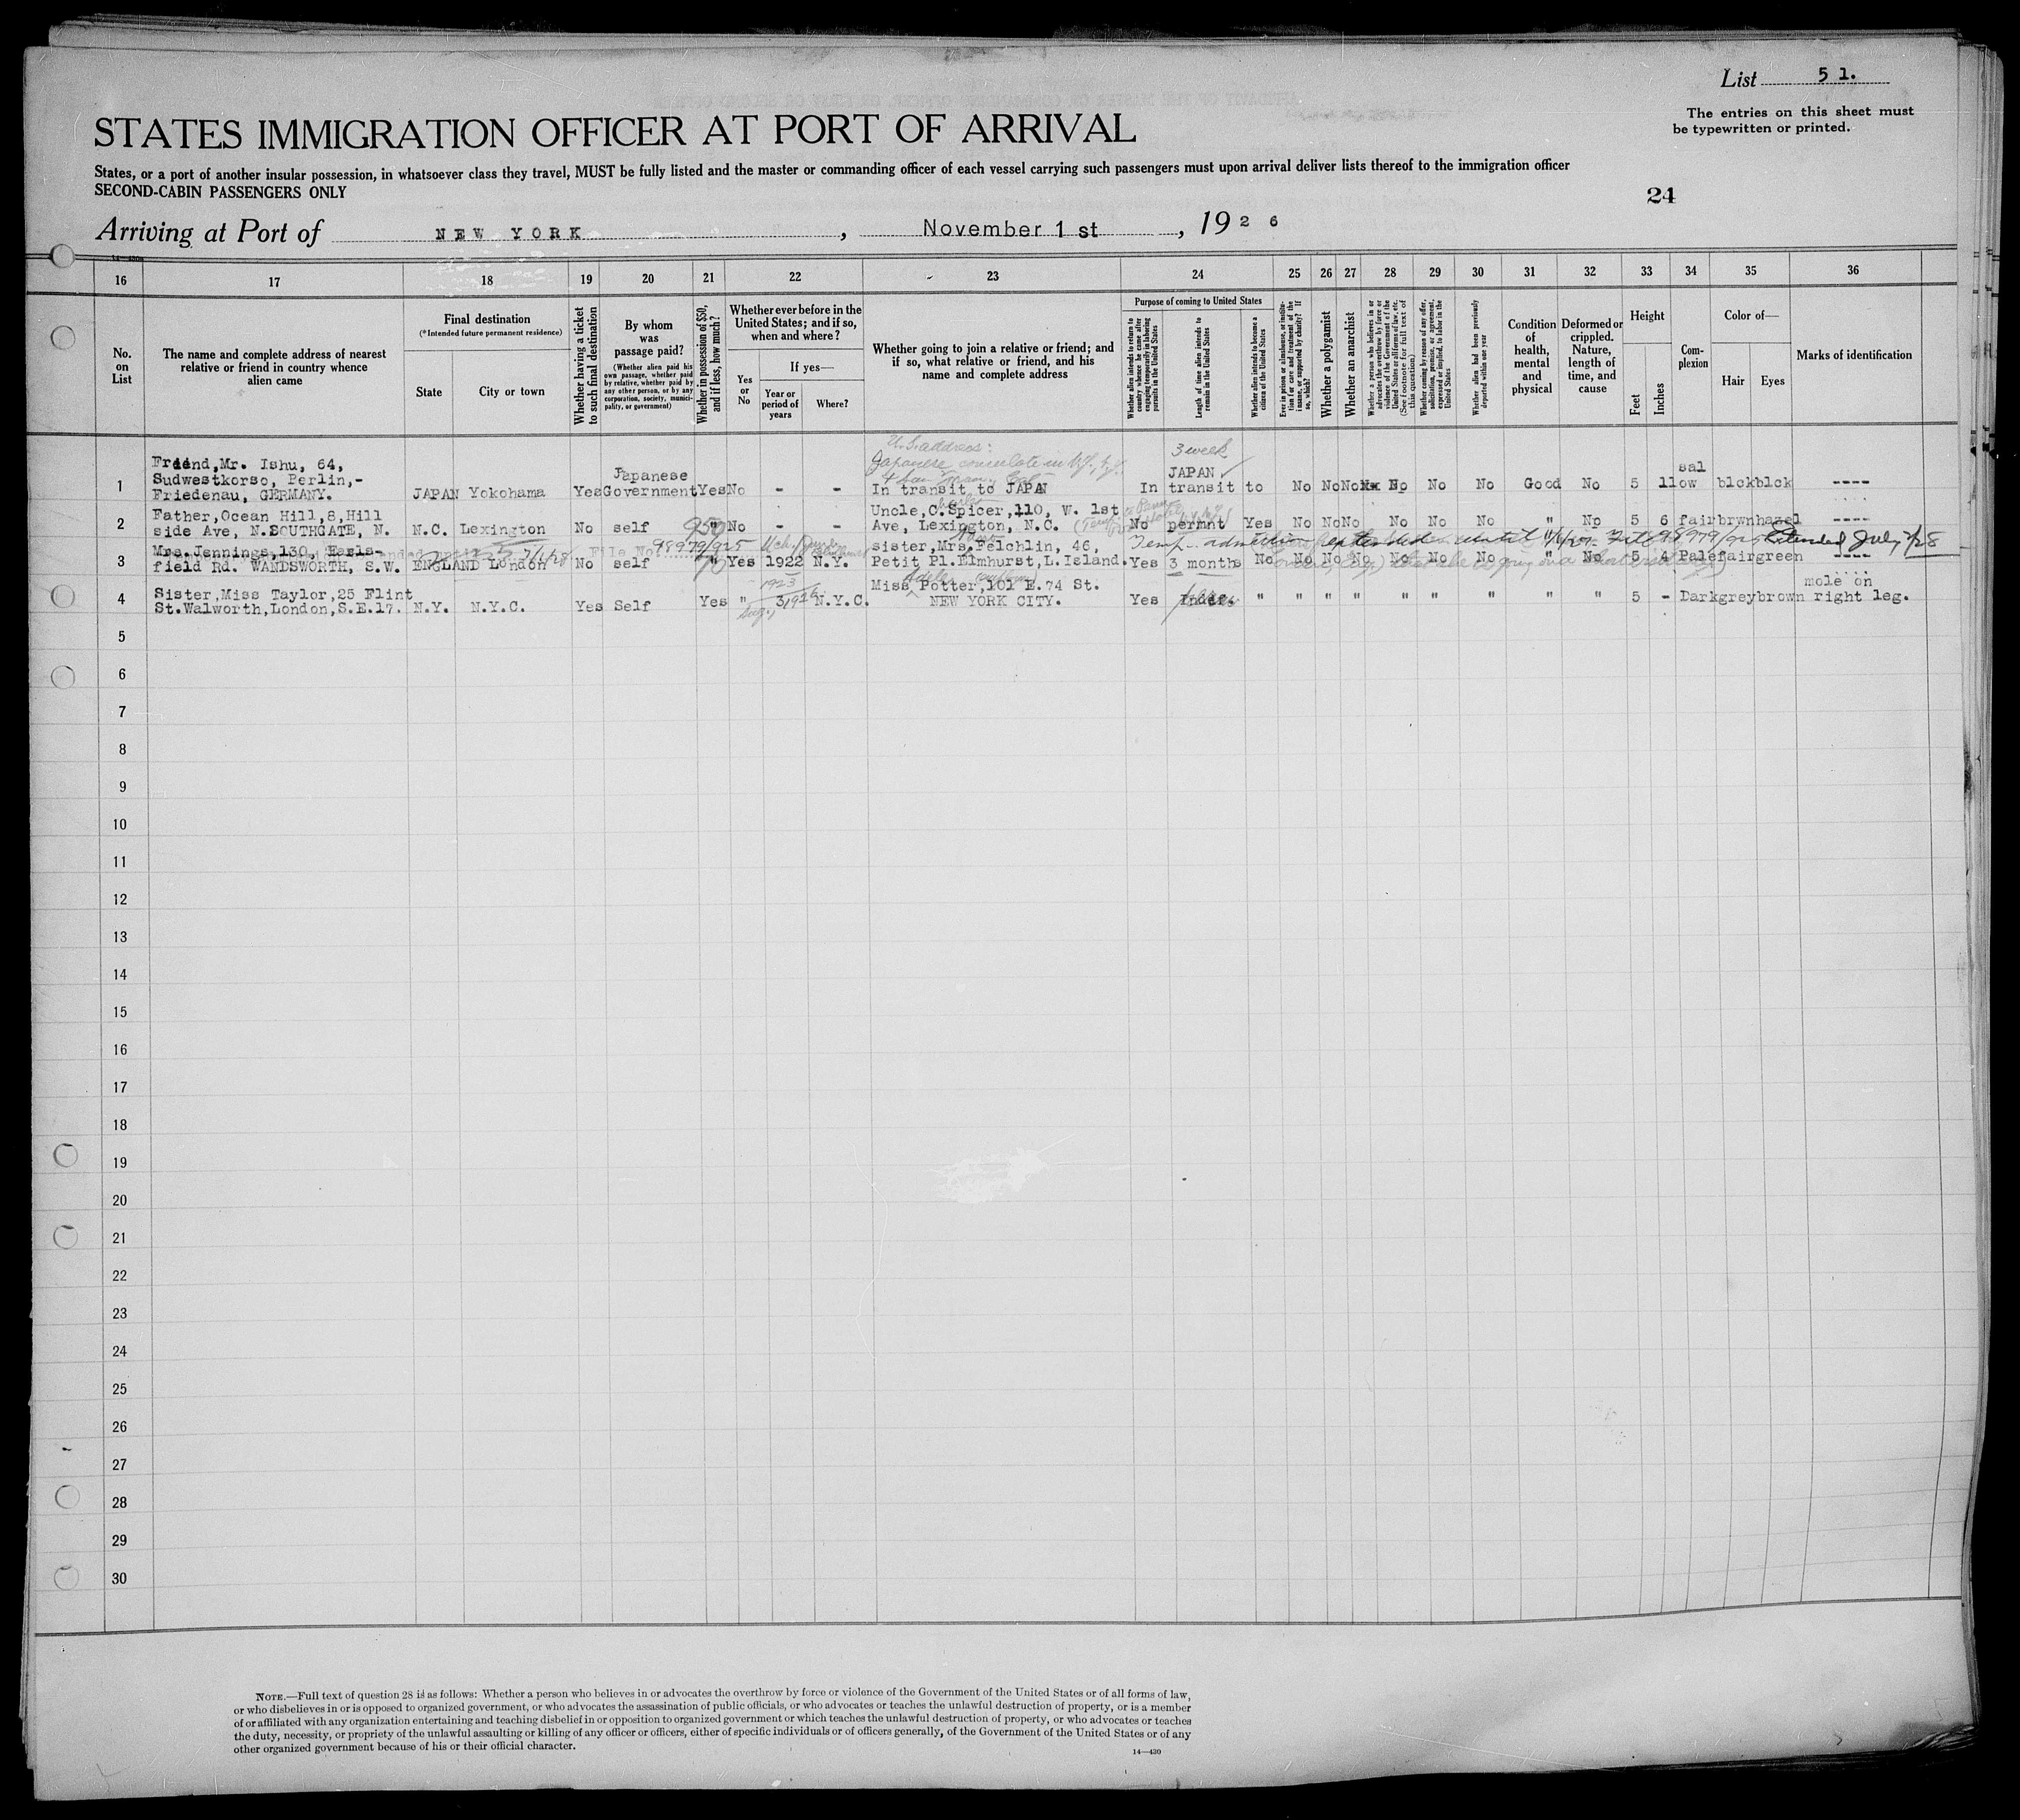 List 5 1.
The entries on this sheet must
be typewritten or printed.
STATES IMMIGRATION OFFICER AT PORT OF ARRIVAL
States, or a port of another insular possession, in whatsoever class they travel, MUST be fully listed and the master or commanding officer of each vessel carrying such passengers must upon arrival deliver lists thereof to the immigration officer
SECOND-CABIN PASSENGERS ONLY
24
Arriving at Port of NEW YORK, November 1 st, 192 6
16 17 18 19 20 21 22 23 24 25 26 27 28 29 30 31 32 33 34 35 36
No.
on
List
The name and complete address of nearest
relative or friend in country whence
alien came
Final destination
(*Intended future permanent residence)
State
City or town
Whether having a ticket
to such final destination
By whom
was
passage paid?
(Whether alien paid his
own passage, whether paid
by relative, whether paid by
any other person, or by any
corporation, society, munici-
pality, or government)
Whether in possession of $50,
and if less, how much?
Whether ever before in the
United States; and if so,
when and where?
Yes
or
No
If yes—
Year or
period of
years
Where?
Whether going to join a relative or friend; and
if so, what relative or friend, and his
name and complete address
Purpose of coming to United States
Whether alien intends to return to
country whence he came after
engaging temporarily in laboring
pursuits in the United States
Length of time alien intends to
remain in the United States
Whether alien intends to become a
citizen of the United States
Ever in prison or almshouse, or institu-
tion for care and treatment of the
insane, or supported by charity? If
so, which?
Whether a polygamist
Whether an anarchist
Whether a person who believes in or
advocates the overthrow by force or
violence of the Government of the
United States or all forms of law, etc.
(See footnote for full text of
this question)
Whether coming by reason of any offer,
solicitation, promise, or agreement,
expressed or implied, to labor in the
United States
Whether alien had been previously
deported within one year
Condition
of
health,
mental
and
physical
Deformed or
crippled.
Nature,
length of
time, and
cause
Height
Feet
Inches
Com-
plexion
Color of—
Hair
Eyes
Marks of identification
U.S. address:
Japanese consulate in
3 week
1 Friend,Mr. Ishu, 64,
Sudwestkorso, Perlin,-
Friedenau, GERMANY. JAPAN Yokohama Yes Japanese
Government Yes No - - In transit to JAPAN In transit to
JAPAN No No No No No No Good No 5 1 sal
low blck blck ----
2 Father,Ocean Hill,8,Hill
side Ave, N.SOUTHGATE, N. N.C. Lexington No self " No - - Uncle,C.Spicer,110, W. 1st
Ave, Lexington, N.C. No permnt Yes No No No No No No " No 5 6 fair brwn hazel ----
File No. 98979/925
Temp. admission Extended July 1/28
3 Mrs. Jennings,130, Earls-
field Rd. WANDSWORTH, S.W. ENGLAND London No self " Yes 1922 N.Y. sister,Mrs.Pelchlin, 46,
Petit Pl.Elmhurst,L.Island. Yes 3 months No No No No No No No " No 5 4 Pale fair green ----
4 Sister,Miss Taylor,25 Flint
St.Walworth,London,S.E.17. N.Y. N.Y.C. Yes Self Yes " 1923
1926 N.Y.C. Miss Adele Potter,101 E.74 St.
NEW YORK CITY. Yes Indef. " " " " " " " " " 5 - Dark grey brown mole on
right leg.
5
6
7
8
9
10
11
12
13
14
15
16
17
18
19
20
21
22
23
24
25
26
27
28
29
30
NOTE.—Full text of question 28 is as follows: Whether a person who believes in or advocates the overthrow by force or violence of the Government of the United States or of all forms of law,
or who disbelieves in or is opposed to organized government, or who advocates the assassination of public officials, or who advocates or teaches the unlawful destruction of property, or is a member
of or affiliated with any organization entertaining and teaching disbelief in or opposition to organized government or which teaches the unlawful destruction of property, or who advocates or teaches
the duty, necessity, or propriety of the unlawful assaulting or killing of any officer or officers, either of specific individuals or of officers generally, of the Government of the United States or of any
other organized government because of his or their official character.
14—430